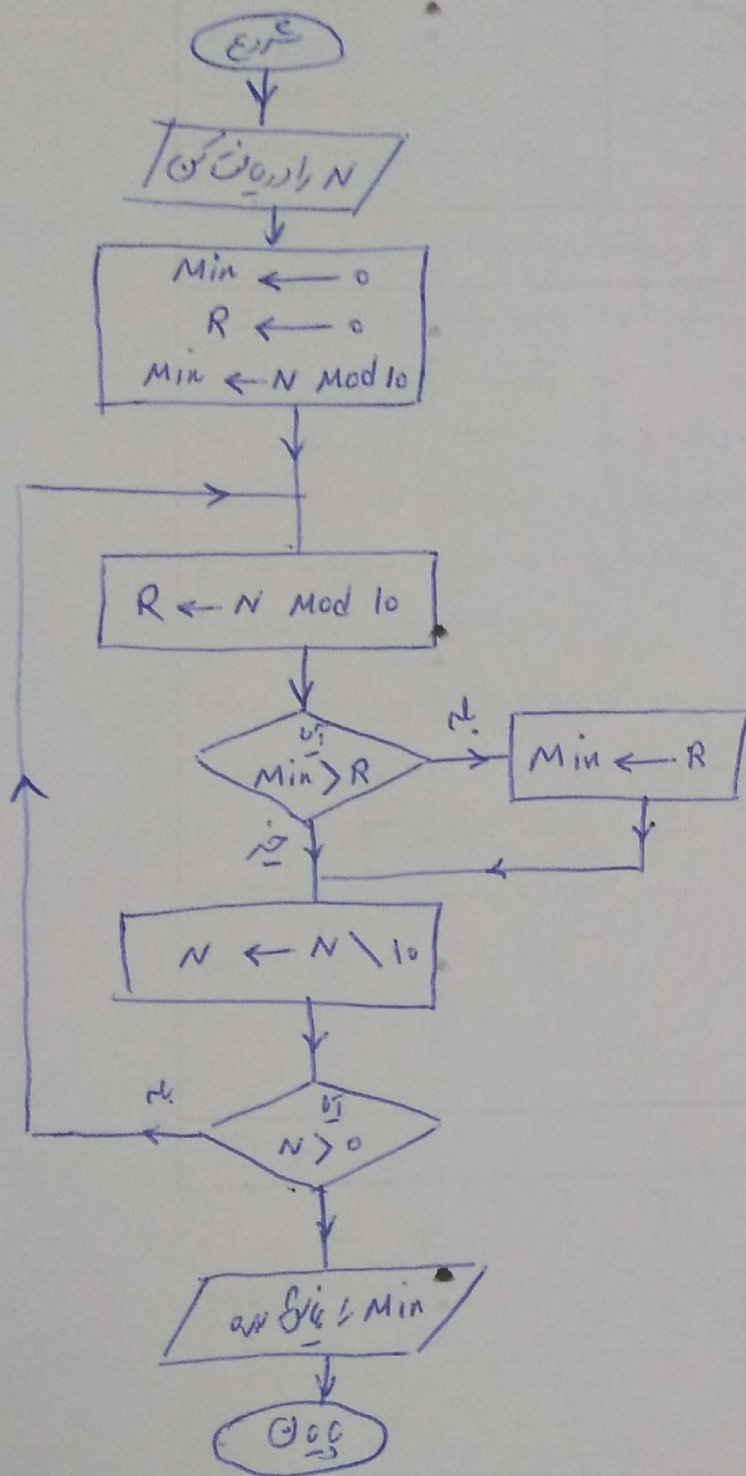 شروع
N را دریافت کن
Min ← 0
R ← 0
Min ← N Mod 10
R ← N Mod 10
آیا
Min > R
بله
Min ← R
خیر
N ← N \ 10
آیا
N > 0
بله
Min را چاپ کن